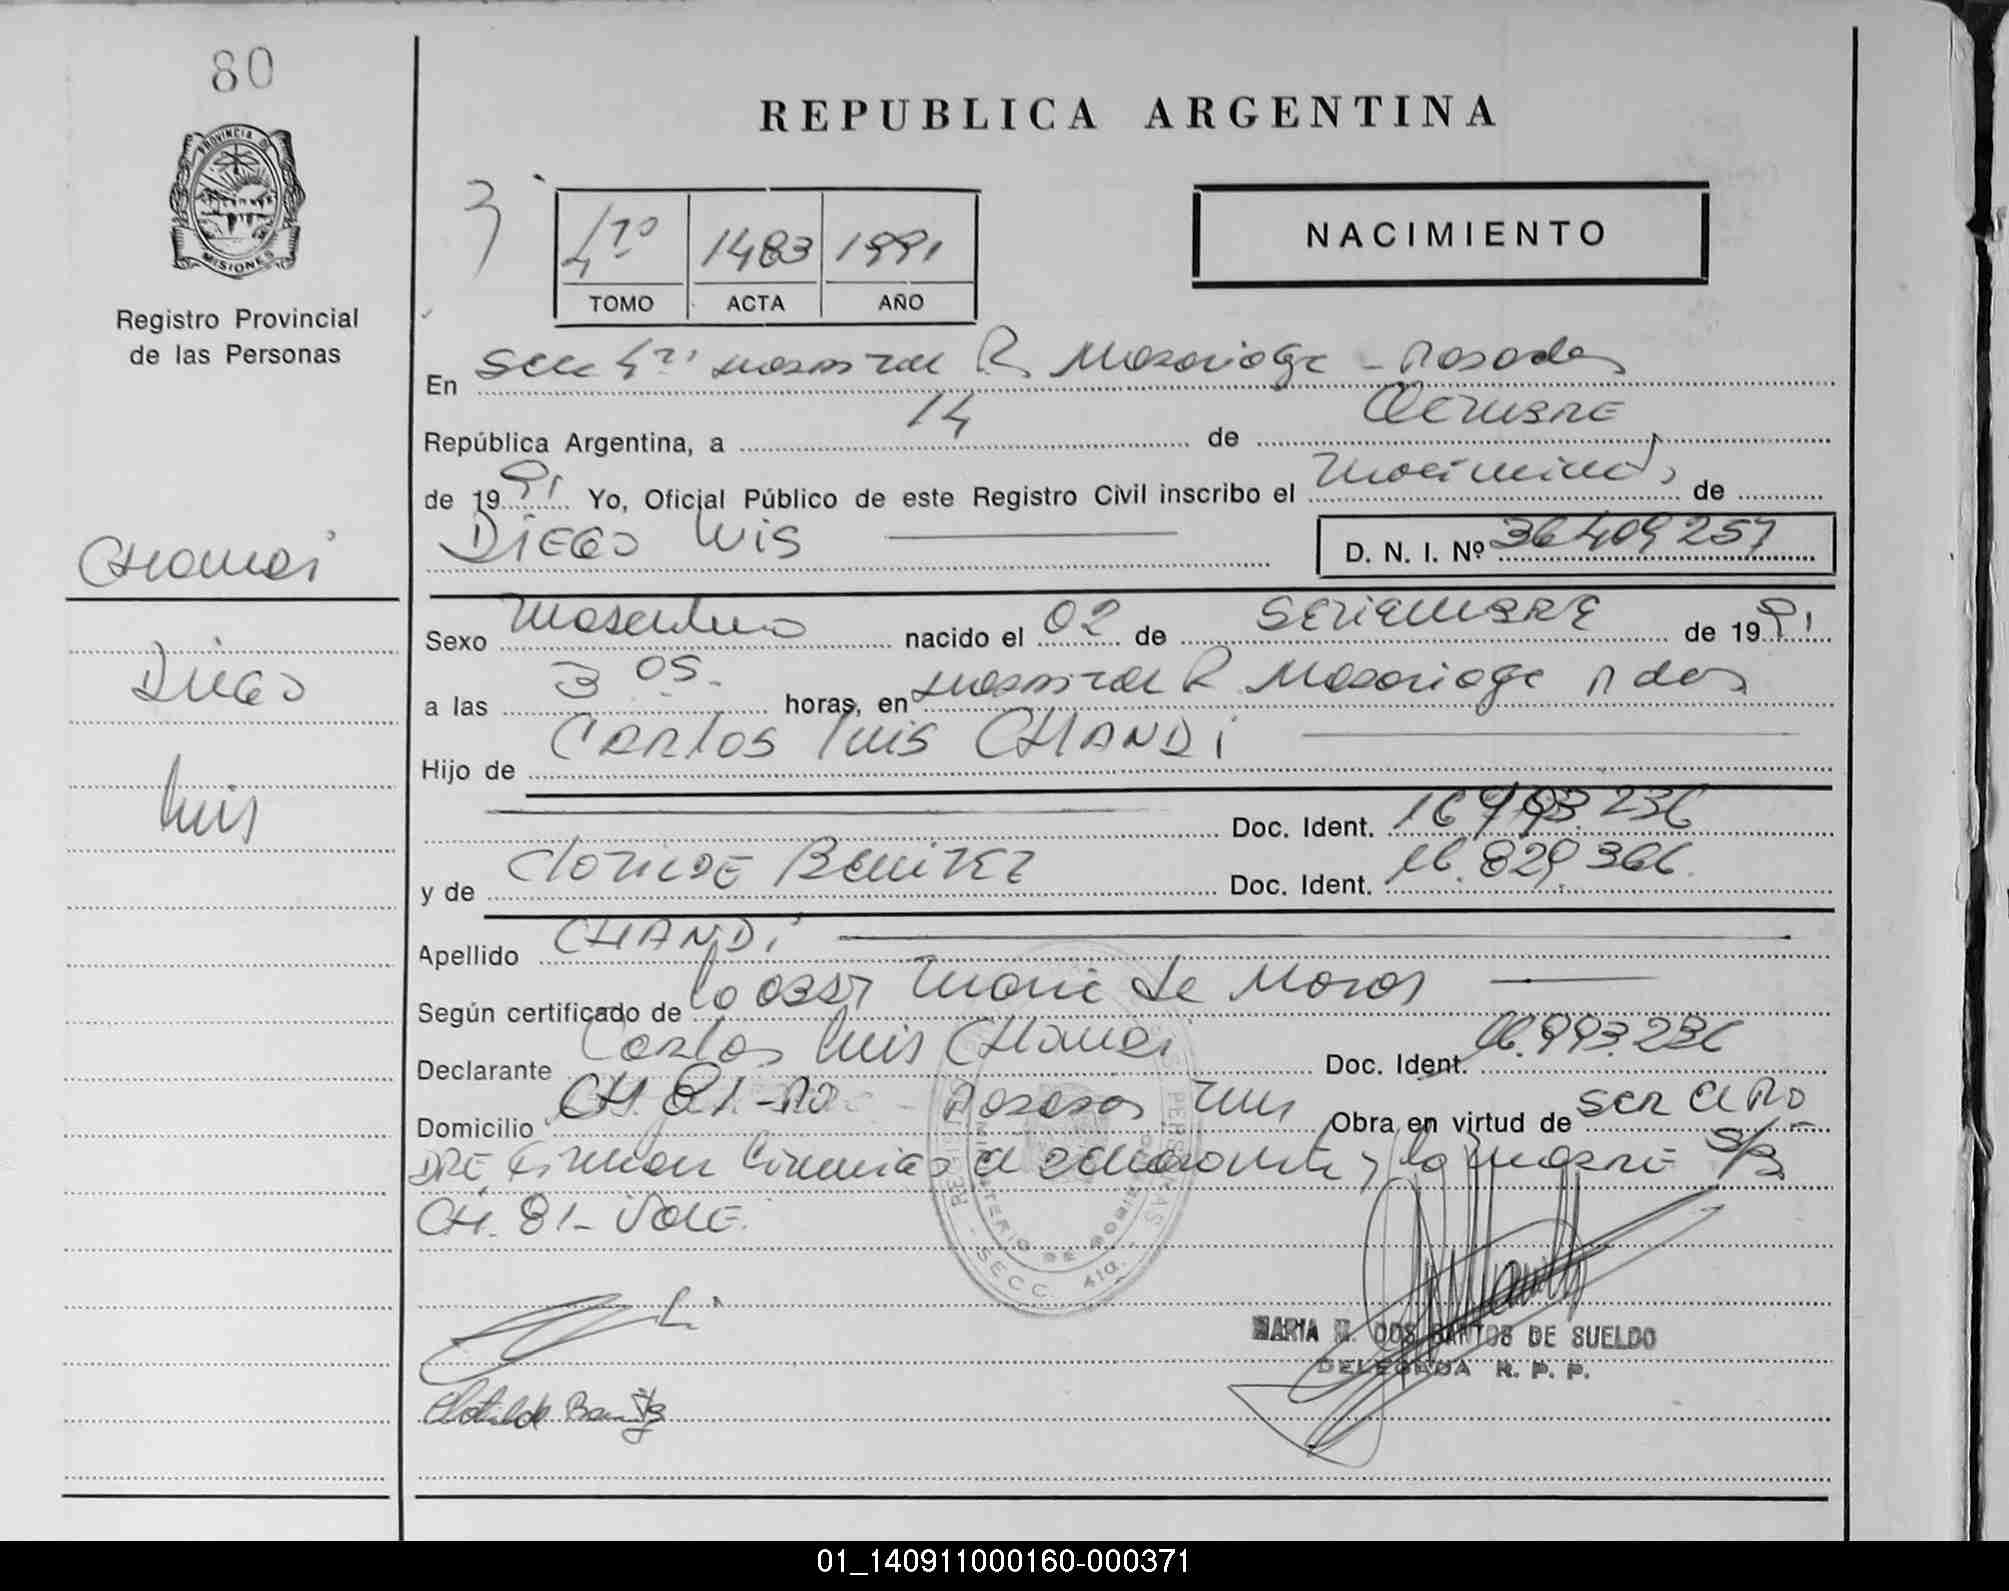 80
REPUBLICA ARGENTINA
PROVINCIA DE
MISIONES
Registro Provincial
de las Personas
3
4to 1483 1991
TOMO ACTA AÑO
NACIMIENTO
En Secc 4ta Hospital R Madariaga - Posadas
República Argentina, a 14 de Octubre
de 1991 Yo, Oficial Público de este Registro Civil inscribo el Nacimiento de
Diego Luis D. N. I. Nº 36409257
Chandi
Diego
Luis
Sexo Masculino nacido el 02 de Setiembre de 1991
a las 3 05 horas, en Hospital R Madariaga Pdas
Hijo de Carlos Luis CHANDi
Doc. Ident. 16 993 236
y de Clotilde Benitez Doc. Ident. 16.829.366
Apellido CHANDi
Según certificado de la Obst Maria de
Declarante Carlos Luis Chandi Doc. Ident. 16.993.236
Domicilio CH. 81 - Posadas Mns Obra en virtud de ser el Pa
dre Firman conmigo el declarante y la madre s/
CH. 81 - Vale.
SECC. 4ta.
MINISTERIO DE GOBIERNO
Clotilde Benitez
MARIA M. DOS SANTOS DE SUELDO
DELEGADA R. P. P.
01_140911000160-000371